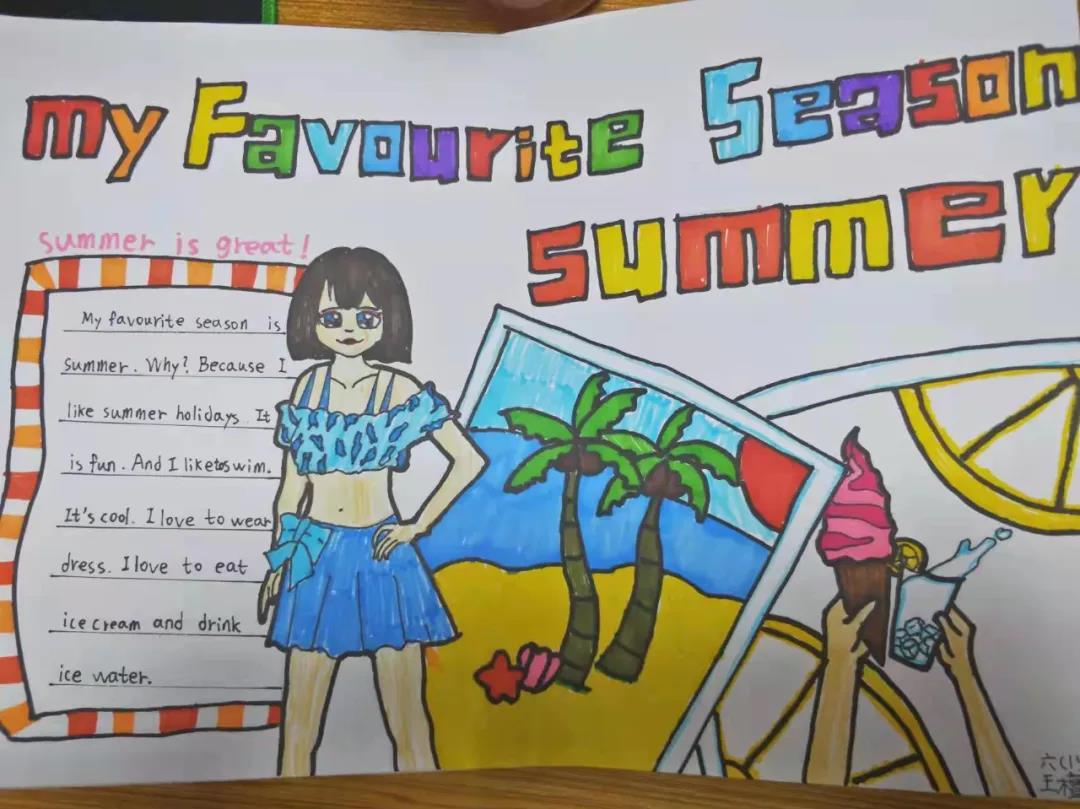 my Favourite Season
summer
summer is great!
My favourite season is
summer. Why? Because I
like summer holidays. It
is fun. And I like to swim.
It's cool. I love to wear
dress. I love to eat
ice cream and drink
ice water.
六(1)
王